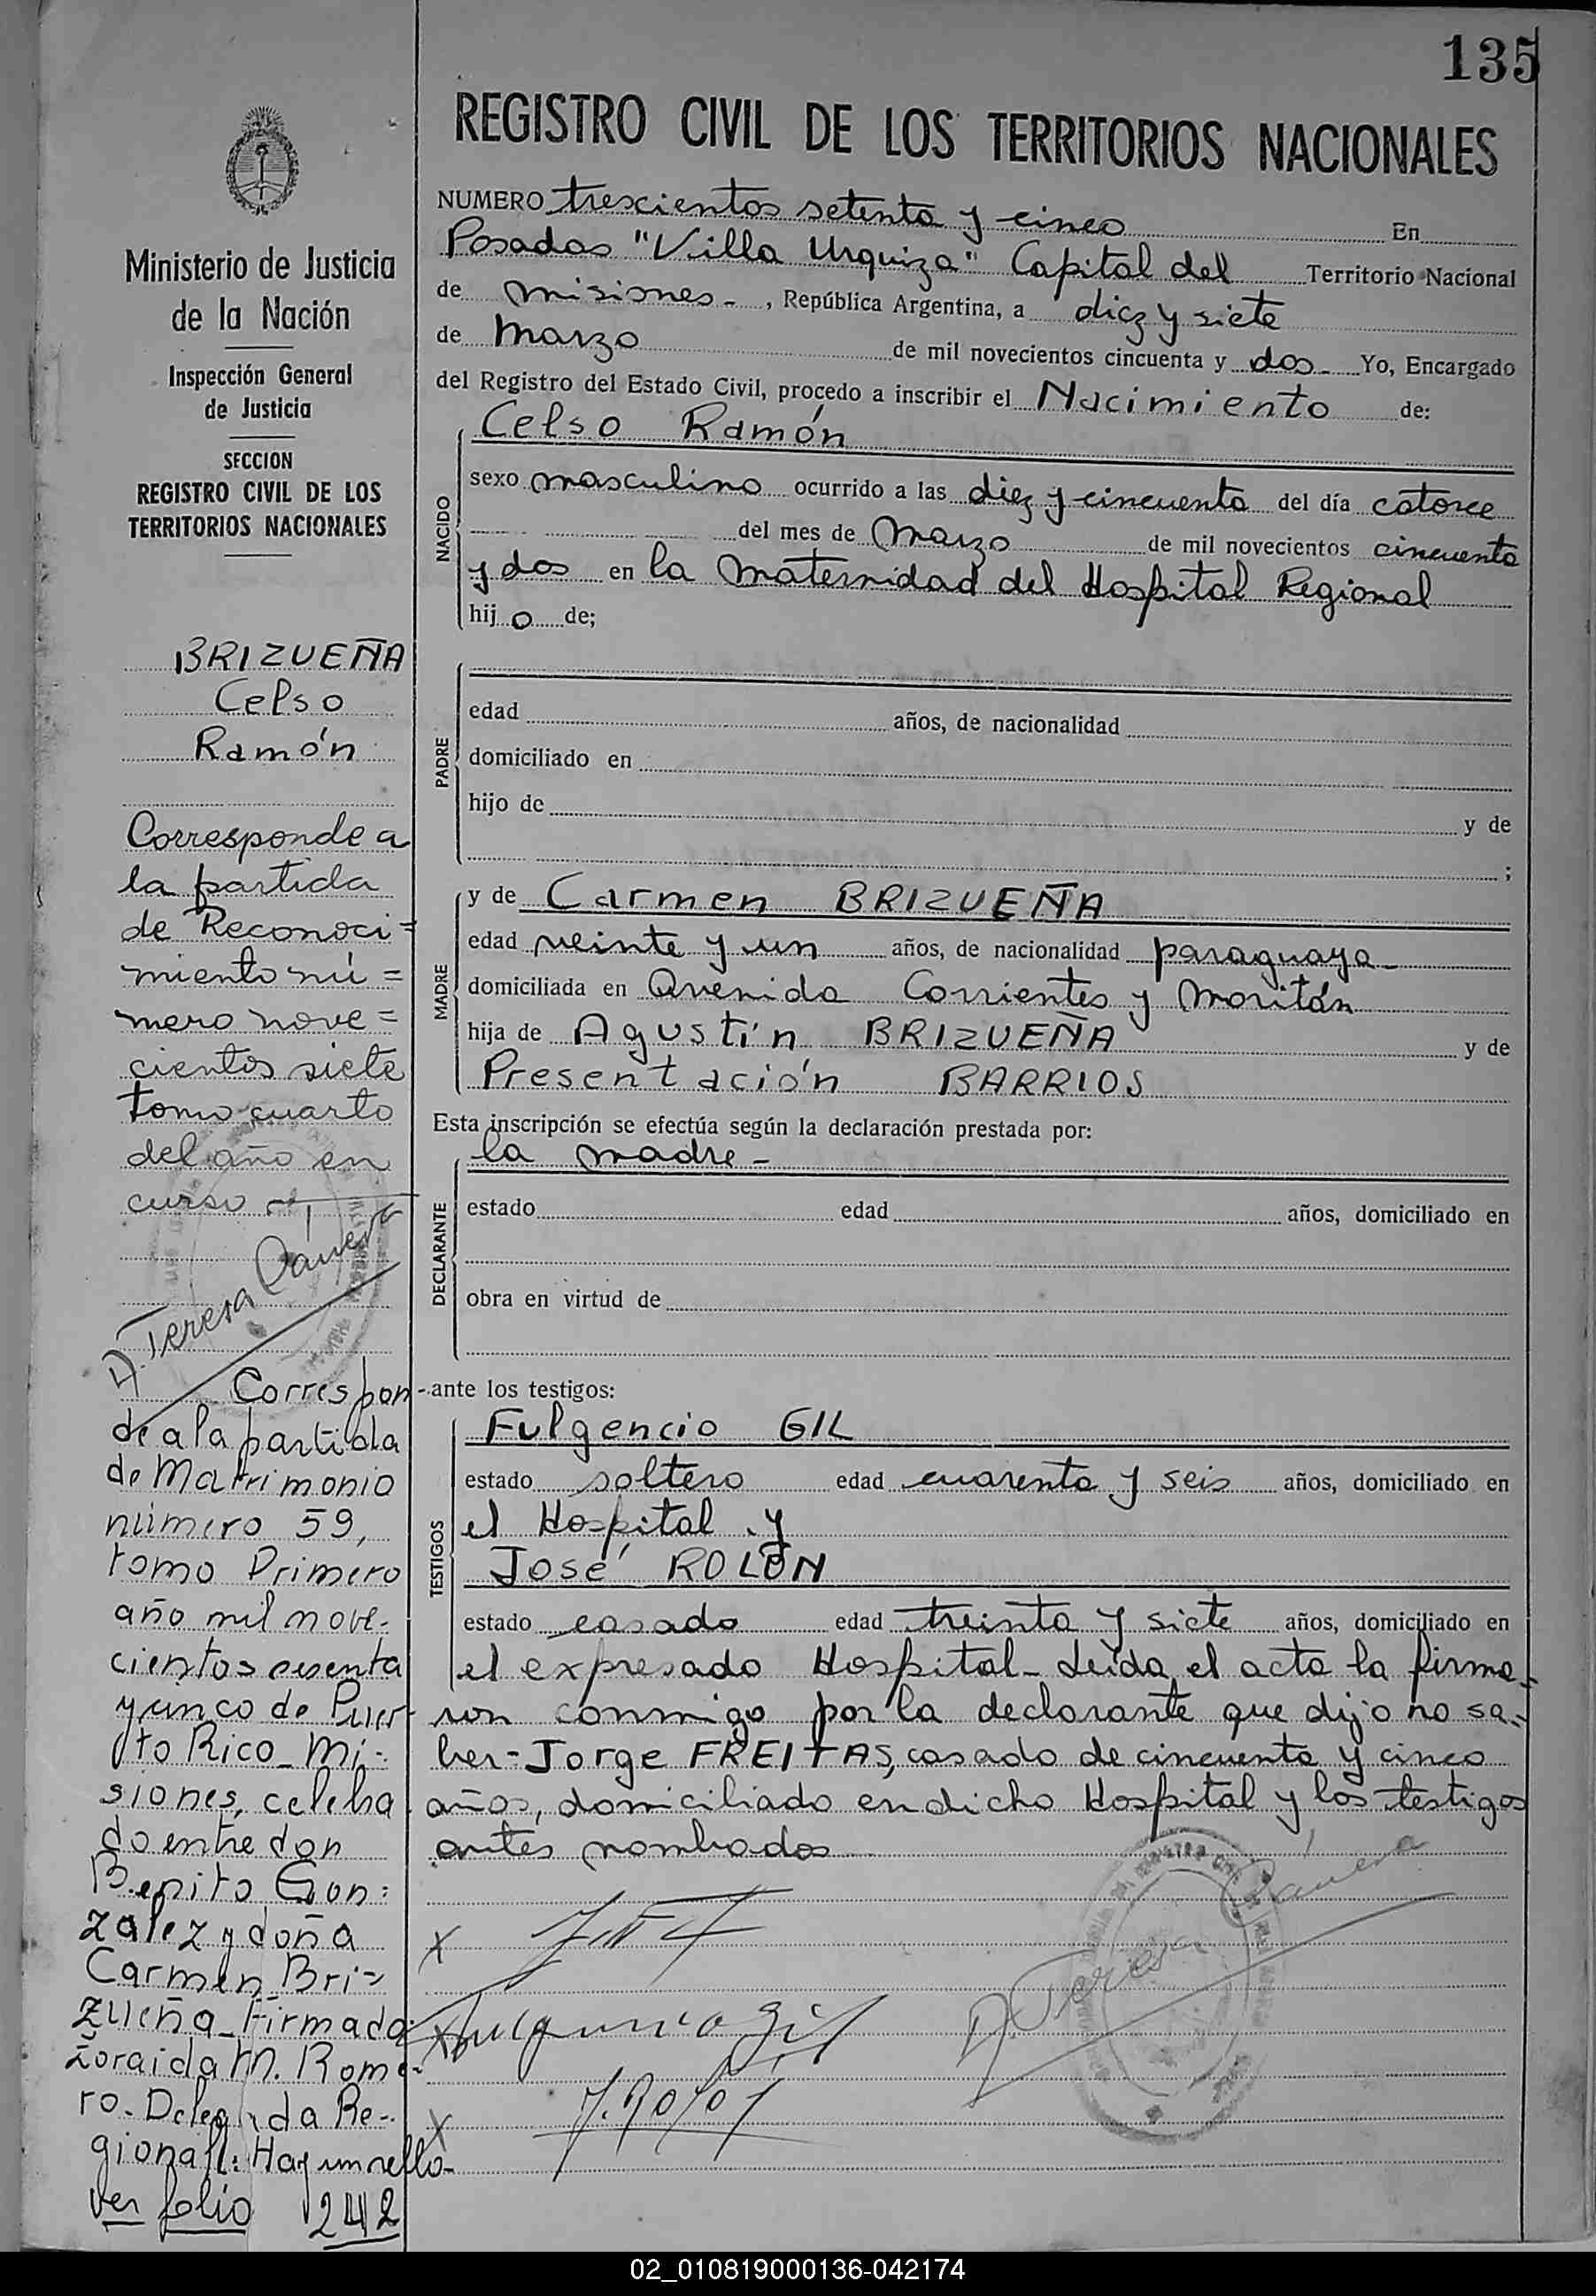 135
REGISTRO CIVIL DE LOS TERRITORIOS NACIONALES
Ministerio de Justicia
de la Nación
Inspección General
de Justicia
SECCION
REGISTRO CIVIL DE LOS
TERRITORIOS NACIONALES
BRIZUEÑA
Celso
Ramón
Corresponde a
la partida
de Reconoci=
miento nú=
mero nove=
cientos siete
tomo cuarto
del año en
curso
A. Teresa
Correspon-
de a la partida
de Matrimonio
número 59,
tomo Primero
año mil nove-
cientos sesenta
y cinco de Puer-
to Rico_ Mi-
siones, celeba
do entre don
Benito Gon:
zalez y doña
Carmen Bri=
zueña_Firmado:
Zoraida M. Rome-
ro. Delegada Re-
gional: Hay un sello-
Ver folio 242
NUMERO trescientos setenta y cinco En
Posadas "Villa Urquiza" Capital del Territorio Nacional
de misiones-, República Argentina, a diez y siete
de marzo de mil novecientos cincuenta y dos- Yo, Encargado
del Registro del Estado Civil, procedo a inscribir el Nacimiento de:
NACIDO
Celso Ramón
sexo masculino ocurrido a las diez y cincuenta del día catorce
del mes de marzo de mil novecientos cincuenta
y dos en la maternidad del Hospital Regional
hijo de;
PADRE
edad años, de nacionalidad
domiciliado en
hijo de y de
;
MADRE
y de Carmen BRIZUEÑA
edad veinte y un años, de nacionalidad paraguaya-
domiciliada en Avenida Corrientes y Moritán
hija de Agustín BRIZUEÑA y de
Presentación BARRIOS
Esta inscripción se efectúa según la declaración prestada por:
DECLARANTE
la madre-
estado edad años, domiciliado en
obra en virtud de
ante los testigos:
TESTIGOS
Fulgencio GIL
estado soltero edad cuarenta y seis años, domiciliado en
el Hospital y
José ROLÓN
estado casado edad treinta y siete años, domiciliado en
el expresado Hospital- Leída el acta la firma-
ron conmigo por la declarante que dijo no sa-
ber- Jorge FREITAS, casado de cincuenta y cinco
años, domiciliado en dicho Hospital y los testigos
antes nombados
X
X Fulgencio Gil
X J. Rolón
A. Teresa
02_010819000136-042174